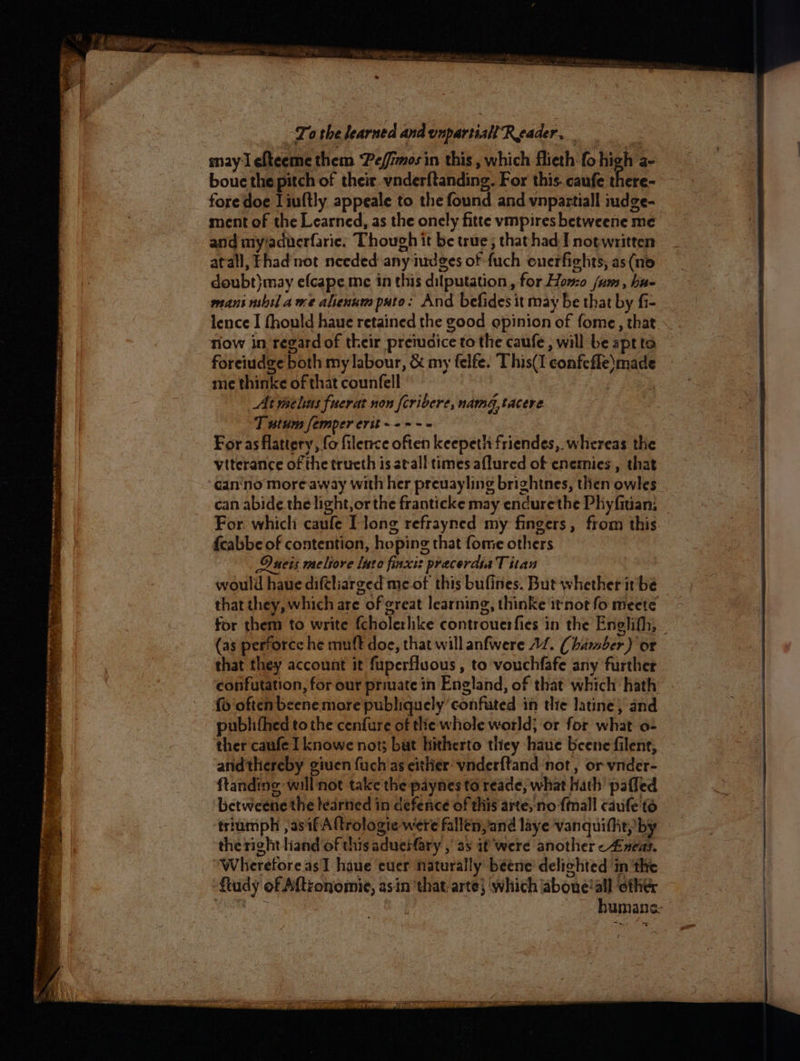 To the learned and vnpartiall Reader.
may I esteeme them Pessimos in this, which flieth so high a-
boue the pitch of their vnderstanding. For this cause there-
fore doe I iustly appeale to the sound and vnpartiall iudge-
ment of the Learned, as the onely fitte vmpires betweene me
and my aduersarie. Though it be true, that had I not written
at all, I had not needed any iudges of such ouersights, as (no
doubt) may escape me in this disputation, for Homo sum, hu-
mani nihil a me alienum puto: And besides it may be that by si-
lence I should haue retained the good opinion of some, that
now in regard of their preiudice to the cause, will be apt to
foreiudge both my labour, & my selfe. This (I confesse) made
me thinke of that counsell
At melius fuerat non scribere, namq, tacere
Tutum semper erit - - - - -
For as flattery, so silence often keepeth friendes, whereas the
vtterance of the trueth is at all times assured of enemies, that
can no more away with her preuayling brightnes, then owles
can abide the light, or the franticke may endure the Physitian;
For which cause I long refrayned my fingers, from this
scabbe of contention, hoping that some others
Queis meliore luto finxit precordia Titan
would haue discharged me of this busines. But whether it be
that they, which are of great learning, thinke it not so meete
for them to write scholerlike controuersies in the English,
(as perforce he must doe, that will answere M. Chamber) or
that they account it superfluous, to vouchsafe any further
confutation, for our priuate in England, of that which hath
so often beene more publiquely confuted in the latine, and
published to the censure of the whole world; or for what o-
ther cause I knowe not; but hitherto they haue beene silent,
and thereby giuen such as either vnderstand not, or vnder-
standing will not take the paynes to reade, what hath passed
betweene the learned in defence of this arte, no small cause to
triumph, as if Astrologie were fallen, and laye vanquisht, by
the right hand of this aduersary, as it were another Æneas.
Wherefore as I haue euer naturally beene delighted in the
study of Astronomie, as in that arte, which aboue all other
humane